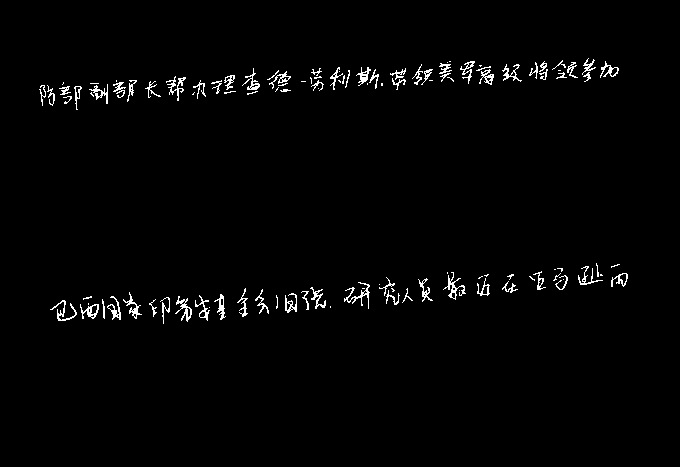 防部副部长帮办理查德-劳利斯.带领美军高级将领参加
巴西国家印第安基金会1日说.研究人员最近在亚马逊西